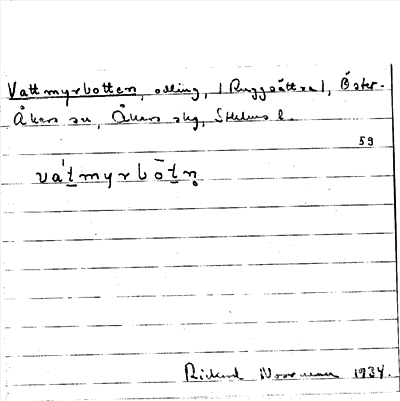 Vattmyrbotten, odling, (Ruggsättra), Öster-
Åkers sn, Åkers skg, Sthlms l.
59
våtmyrbōtn̥
Rickard 1934.